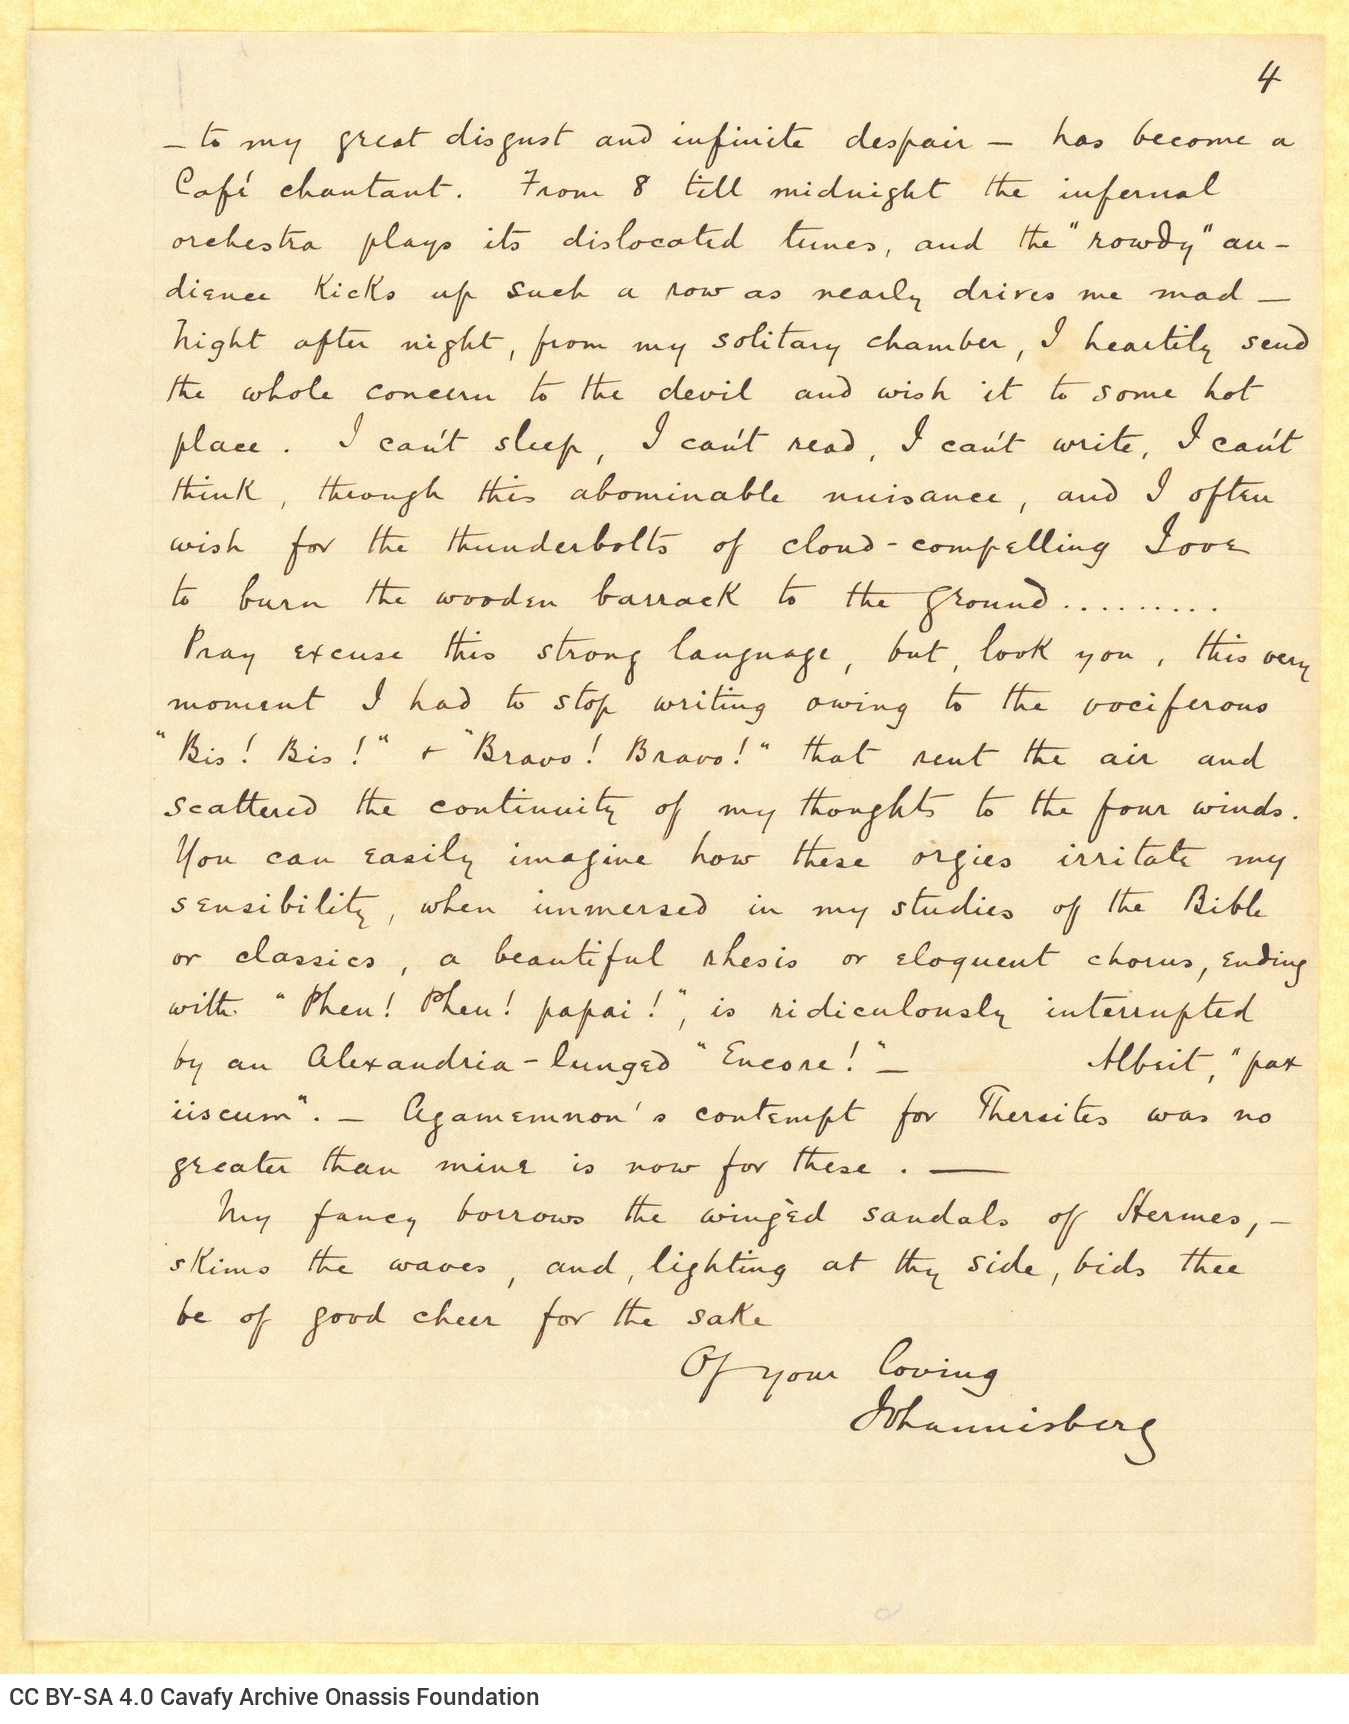 4
– to my great disgust and infinite despair – has become a
Café chantant. From 8 till midnight the infernal
orchestra plays its dislocated tunes, and the "rowdy" au-
dience kicks up such a row as nearly drives me mad –
Night after night, from my solitary chamber, I heartily send
the whole concern to the devil and wish it to some hot
place. I can't sleep, I can't read, I can't write, I can't
think, through this abominable nuisance, and I often
wish for the thunderbolts of cloud-compelling Jove
to burn the wooden barrack to the ground.........
Pray excuse this strong language, but, look you, this very
moment I had to stop writing owing to the vociferous
"Bis! Bis!" + "Bravo! Bravo!" that rent the air and
scattered the continuity of my thoughts to the four winds.
You can easily imagine how these orgies irritate my
sensibility, when immersed in my studies of the Bible
or classics, a beautiful rhesis or eloquent chorus, ending
with "Pheu! Pheu! papai!", is ridiculously interrupted
by an Alexandria-lunged "Encore!" – Albeit, "pax
iiscum". – Agamemnon's contempt for Thersites was no
greater than mine is now for these. —
My fancy borrows the wingèd sandals of Hermes, –
skims the waves, and, lighting at thy side, bids thee
be of good cheer for the sake
Of your loving
Johannisberg
CC BY-SA 4.0 Cavafy Archive Onassis Foundation